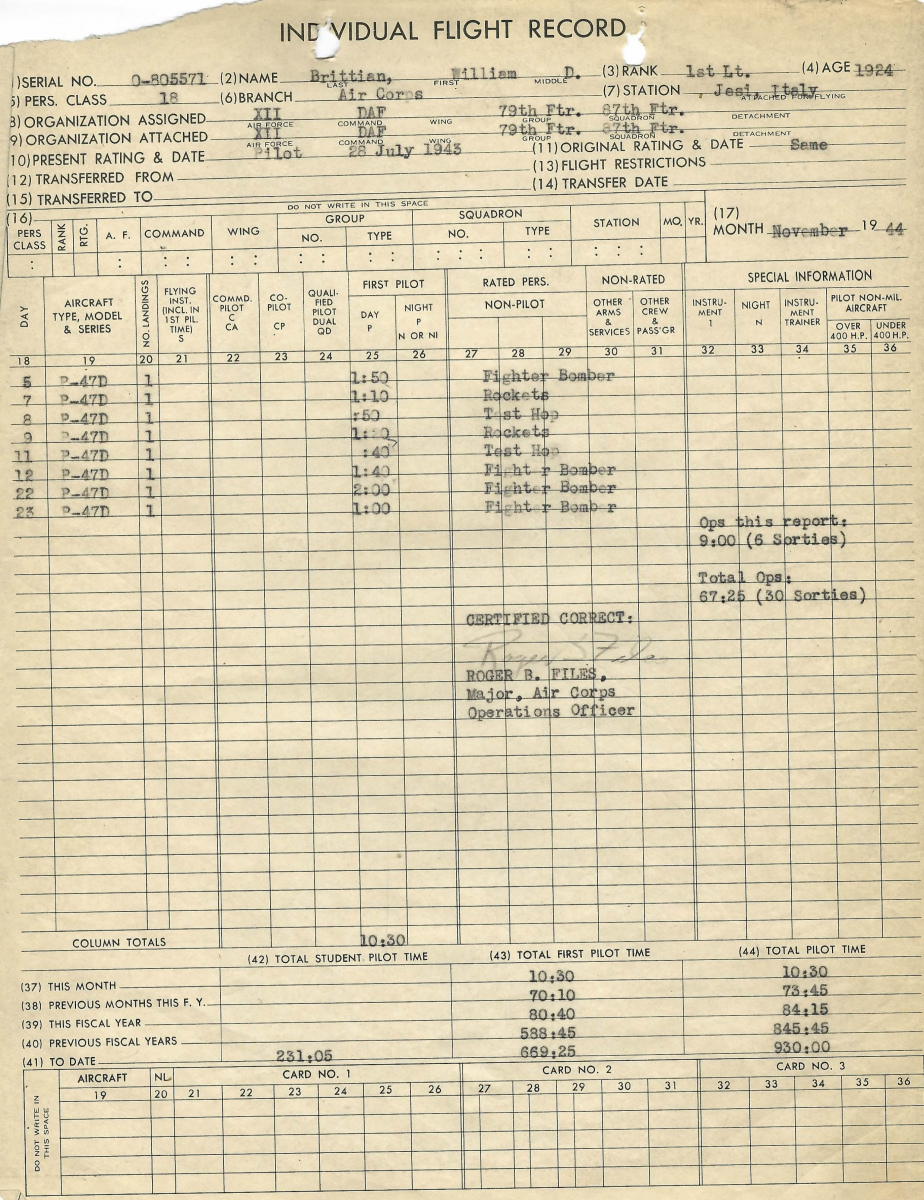 INDIVIDUAL FLIGHT RECORD
1) SERIAL NO. O-805571 (2) NAME Brittian, William D. (3) RANK 1st Lt. (4) AGE 1924
LAST FIRST MIDDLE
5) PERS. CLASS 18 (6) BRANCH Air Corps (7) STATION , Jesi, Italy
ATTACHED FOR FLYING
8) ORGANIZATION ASSIGNED XII DAF 79th Ftr. 87th Ftr.
AIR FORCE COMMAND WING GROUP SQUADRON DETACHMENT
9) ORGANIZATION ATTACHED XII DAF 79th Ftr. 87th Ftr.
AIR FORCE COMMAND WING GROUP SQUADRON DETACHMENT
10) PRESENT RATING & DATE Pilot 28 July 1943 (11) ORIGINAL RATING & DATE Same
(12) TRANSFERRED FROM (13) FLIGHT RESTRICTIONS
(15) TRANSFERRED TO (14) TRANSFER DATE
(16) DO NOT WRITE IN THIS SPACE
PERS CLASS RANK RTG. A. F. COMMAND WING GROUP NO. TYPE SQUADRON NO. TYPE STATION MO. YR. (17) MONTH November 19 44
DAY AIRCRAFT TYPE, MODEL & SERIES NO. LANDINGS FLYING INST. (INCL. IN 1ST PIL. TIME) S COMMD. PILOT C CA CO-PILOT CP QUALIFIED PILOT DUAL QD FIRST PILOT DAY P NIGHT P N OR NI RATED PERS. NON-PILOT NON-RATED OTHER ARMS & SERVICES OTHER CREW & PASS'GR SPECIAL INFORMATION INSTRUMENT I NIGHT N INSTRUMENT TRAINER PILOT NON-MIL. AIRCRAFT OVER 400 H.P. UNDER 400 H.P.
18 19 20 21 22 23 24 25 26 27 28 29 30 31 32 33 34 35 36
5 P-47D 1 1:50 Fighter Bomber
7 P-47D 1 1:10 Rockets
8 P-47D 1 :50 Test Hop
9 P-47D 1 Rockets
11 P-47D 1 :40 Test Hop
12 P-47D 1 1:40 Fight r Bomber
22 P-47D 1 2:00 Fighter Bomber
23 P-47D 1 1:00 Fighter Bomb r
Ops this report:
9:00 (6 Sorties)
Total Ops:
67:25 (30 Sorties)
CERTIFIED CORRECT:
ROGER B. FILES,
Major, Air Corps
Operations Officer
COLUMN TOTALS 10:30
(42) TOTAL STUDENT PILOT TIME (43) TOTAL FIRST PILOT TIME (44) TOTAL PILOT TIME
(37) THIS MONTH 10:30 10:30
(38) PREVIOUS MONTHS THIS F. Y. 70:10 73:45
(39) THIS FISCAL YEAR 80:40 84:15
(40) PREVIOUS FISCAL YEARS 588:45 845:45
(41) TO DATE 231:05 669:25 930:00
DO NOT WRITE IN THIS SPACE
AIRCRAFT NL CARD NO. 1 CARD NO. 2 CARD NO. 3
19 20 21 22 23 24 25 26 27 28 29 30 31 32 33 34 35 36